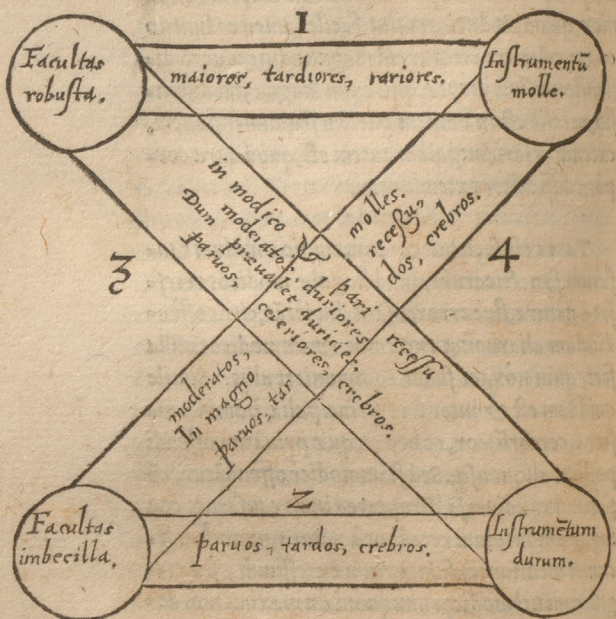 1
Facultas
robusta.
maiores, tardiores, rariores.
Instrumentũ
molle.
in modico & pari recessu
moderatos, duriores.
Dum praeualet duricies,
paruos, celeriores, crebros.
molles.
recessu,
dos, crebros.
moderatos,
In magno
paruos, tar
3
4
2
Facultas
imbecilla.
paruos, tardos, crebros.
Instrumẽtum
durum.